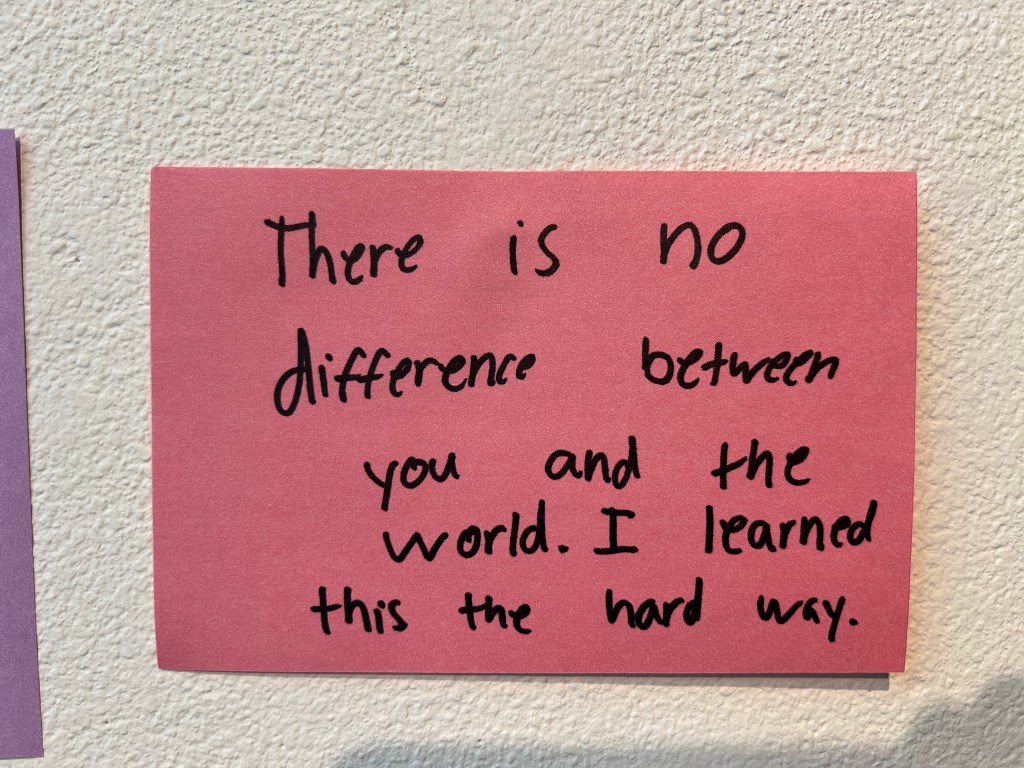 There is no
difference between
you and the
world. I learned
this the hard way.